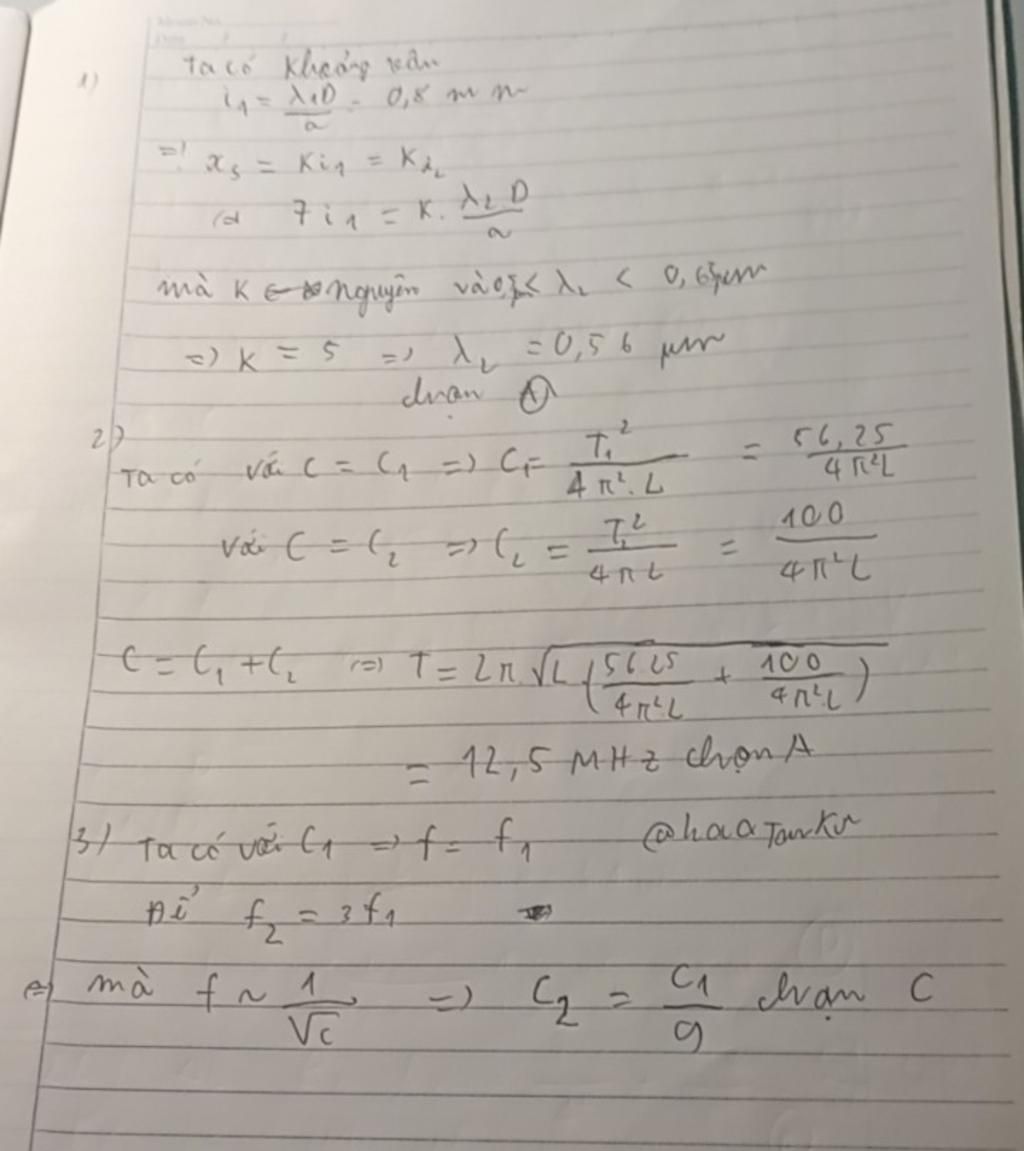 1)
Ta có khoảng vân
i₁ = λ₁D/a = 0,8 mm
=> x₅ = Ki₁ = Kλ₂
7i₁ = K. λ₂D/a
mà K ∈ nguyên và < λ₂ < 0,65μm
=> K = 5 => λ₂ = 0,56 μm
chọn Ⓐ
2)
Ta có với C = C₁ => C₁ = T₁²/4π².L = 56,25/4π²L
với C = C₂ => C₂ = T₂²/4πL = 100/4π²L
C = C₁ + C₂ => T = 2π√L(56,25/4π²L + 100/4π²L)
= 12,5 MHz chọn A
3) Ta có với C₁ => f = f₁
Để f₂ = 3f₁
mà f ~ 1/√C => C₂ = C₁/9 chọn C